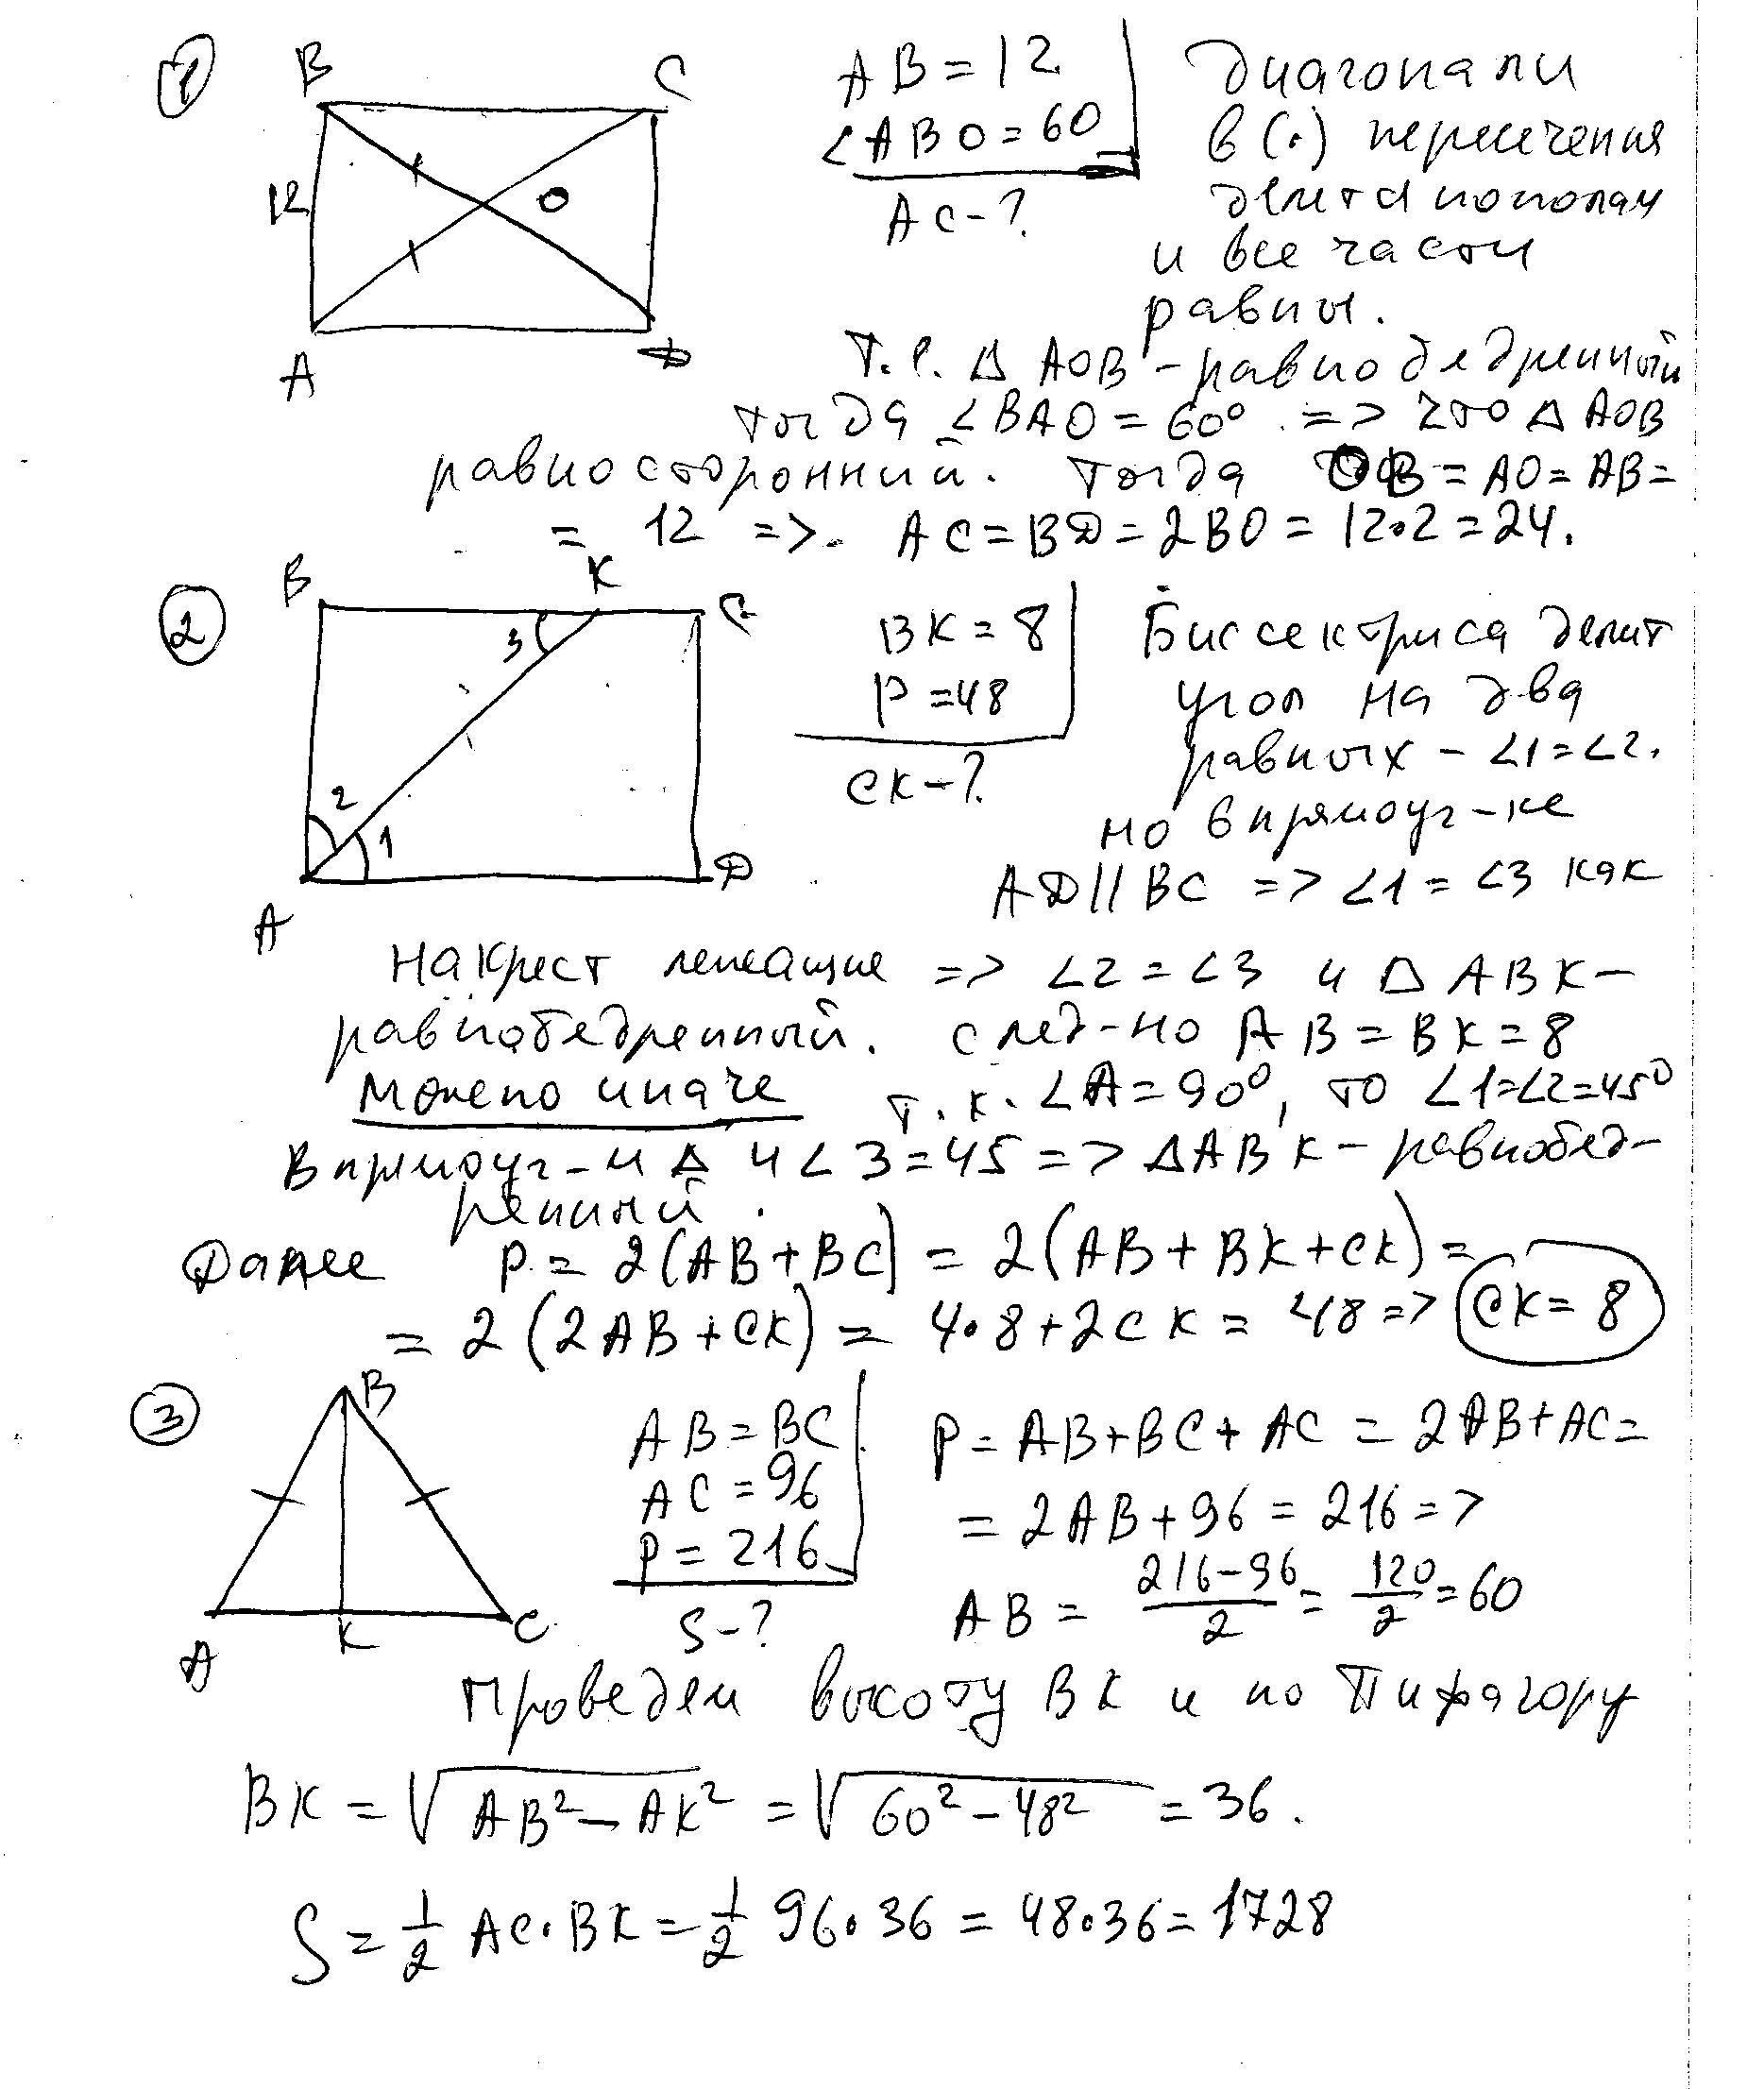 1
B C
12 O
A D
AB = 12
∠ABO = 60
AC - ?
Диагонали
в (·) пересечения
делятся пополам
и все части
равны.
т.е. Δ AOB - равнобедренный
тогда ∠BAO = 60° => это Δ AOB
равносторонний. Тогда OB = AO = AB =
= 12 => AC = BD = 2BO = 12·2 = 24.
2
B K C
3
2 1
A D
BK = 8
P = 48
CK - ?
Биссектриса делит
угол на два
равных - ∠1 = ∠2.
но в прямоуг-ке
AD || BC => ∠1 = ∠3 как
накрест лежащие => ∠2 = ∠3 и Δ ABK -
равнобедренный. след-но AB = BK = 8
Можно иначе т.к. ∠A = 90°, то ∠1=∠2=45°
В прямоуг-м Δ и ∠3 = 45 => ΔABK - равнобед-
ренный.
Далее P = 2(AB + BC) = 2(AB + BK + CK) =
= 2(2AB + CK) = 4·8 + 2CK = 48 => CK = 8
3
B
A K C
AB = BC
AC = 96
P = 216
S - ?
P = AB + BC + AC = 2AB + AC =
= 2AB + 96 = 216 =>
AB = (216 - 96)/2 = 120/2 = 60
Проведем высоту BK и по Пифагору
BK = √(AB² - AK²) = √(60² - 48²) = 36.
S = 1/2 AC·BK = 1/2 96·36 = 48·36 = 1728